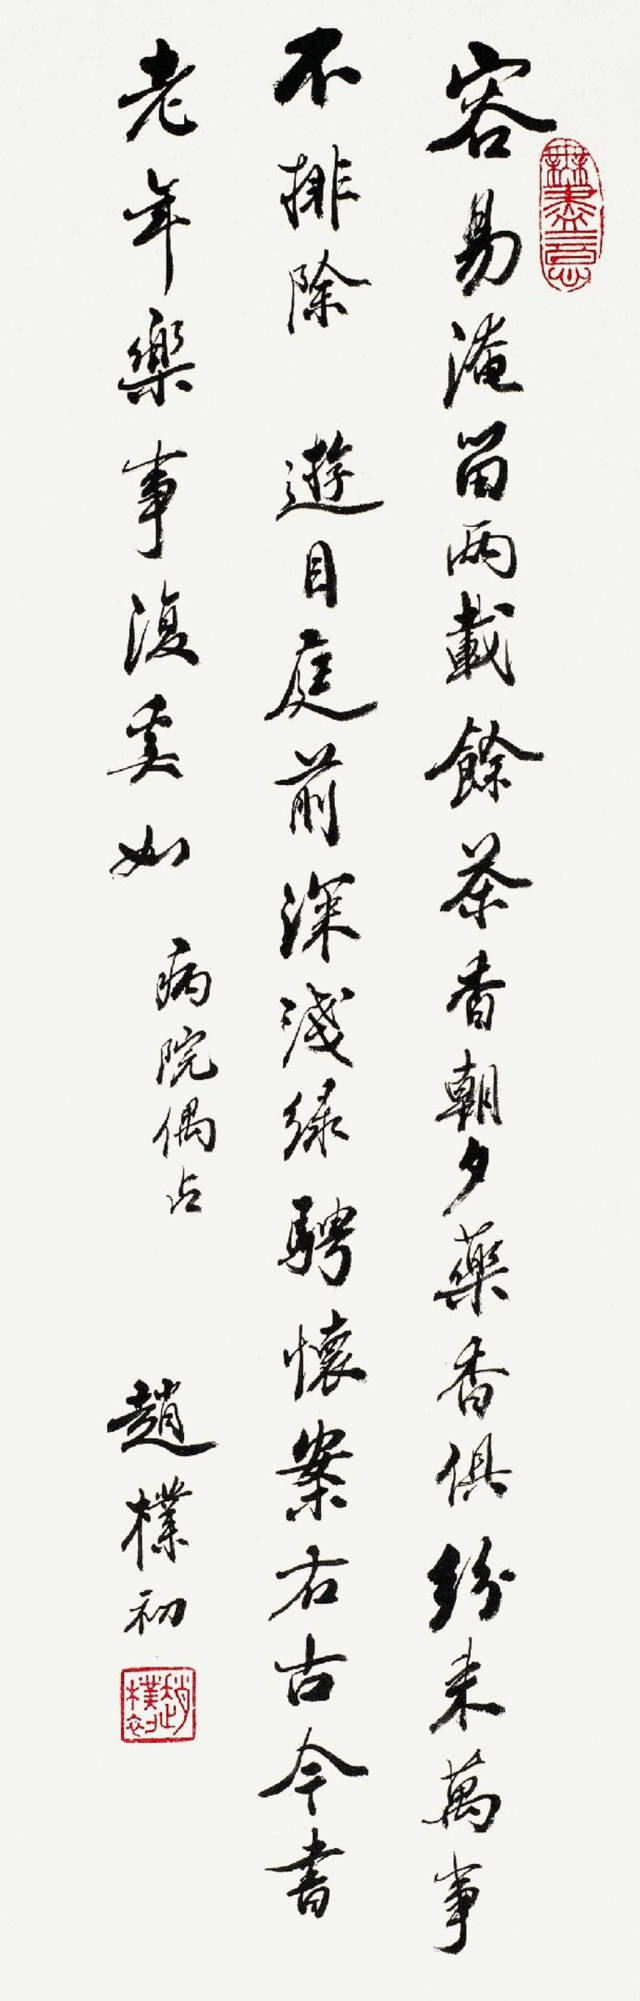 容易淹留兩載餘茶香朝夕藥香俱紛来萬事
不排除 遊目庭前深淺綠騁懷案右古今書
老年樂事復奚如
病院偶占
趙樸初
無盡意
趙樸初